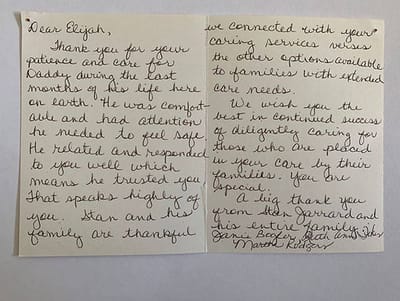 Dear Elijah,
Thank you for your
patience and care for
Daddy during the last
months of his life here
on earth. He was comfort-
able and had attention
he needed to feel safe.
He related and responded
to you well which
means he trusted you.
That speaks highly of
you. Stan and his
family are thankful
we connected with your
caring services verses
the other options available
to families with extended
care needs.
We wish you the
best in continued success
of diligently caring for
those who are placed
in your care by their
families. You are
special.
A big thank you
from Stan Jarrard and
his entire family,
Janis Booker, Beth Ann
Martha Rodgers